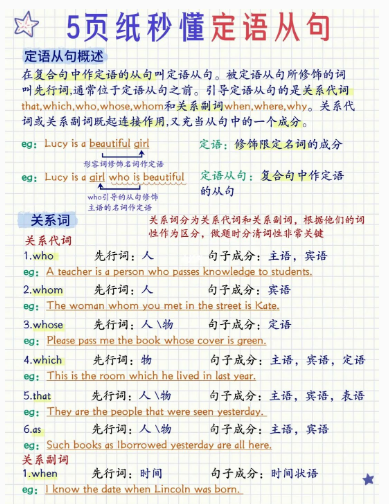 5页纸秒懂定语从句
定语从句概述
在复合句中作定语的从句叫定语从句。被定语从句所修饰的词
叫先行词,通常位于定语从句之前。引导定语从句的是关系代词
that,which,who,whose,whom和关系副词when,where,why。关系代
词或关系副词既起连接作用,又充当从句中的一个成分。
eg: Lucy is a beautiful girl 定语: 修饰限定名词的成分
形容词修饰名词作定语
eg: Lucy is a girl who is beautiful 定语从句: 复合句中作定语
的从句
who引导的从句修饰
主语的名词作定语
关系词
关系词分为关系代词和关系副词，根据他们的词
性作为区分，做题时分清词性非常关键
关系代词
1.who 先行词: 人 句子成分: 主语，宾语
eg: A teacher is a person who passes knowledge to students.
2.whom 先行词: 人 句子成分: 宾语
eg: The woman whom you met in the street is Kate.
3.whose 先行词: 人\物 句子成分: 定语
eg: Please pass me the book whose cover is green.
4.which 先行词: 物 句子成分: 主语，宾语，定语
eg: This is the room which he lived in last year.
5.that 先行词: 人\物 句子成分: 主语，宾语，表语
eg: They are the people that were seen yesterday.
6.as 先行词: 人\物 句子成分: 主语，宾语
eg: Such books as Iborrowed yesterday are all here.
关系副词
1.when 先行词: 时间 句子成分: 时间状语
eg: I know the date when Lincoln was born.